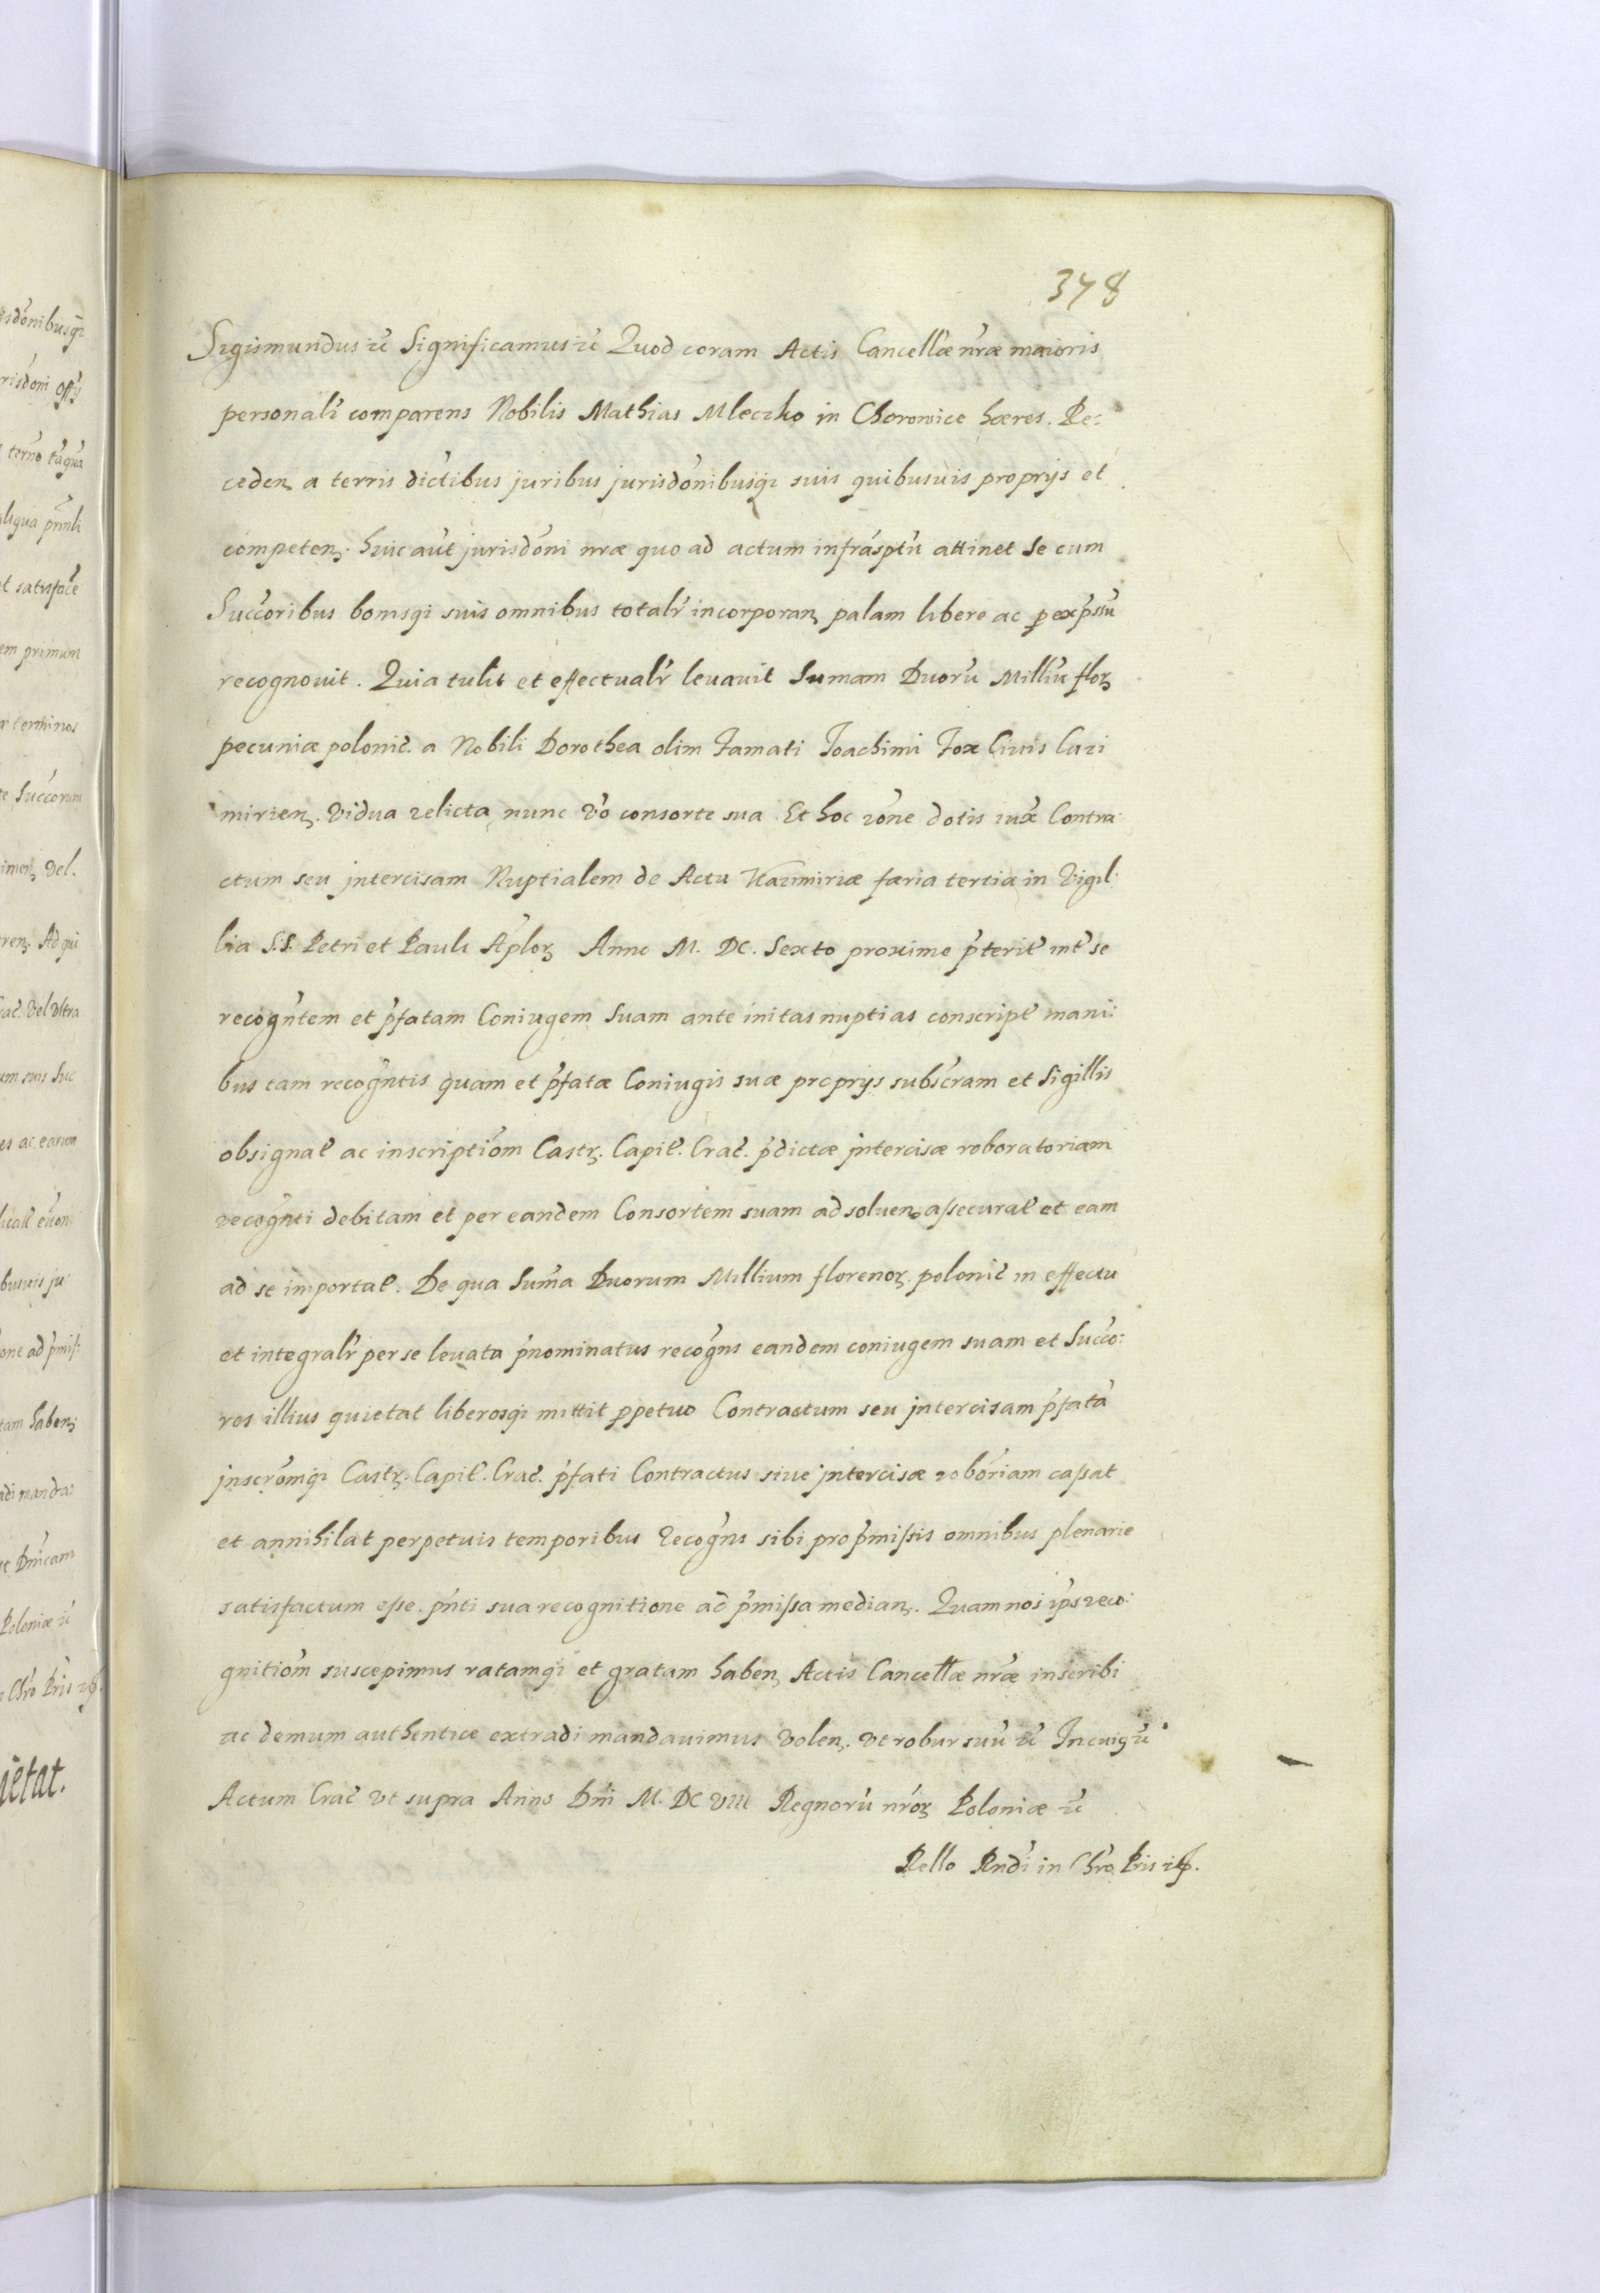 378
Sigismundus etc̃ Significamus etc̃ Quod coram Actis Cancellæ nr̃æ maioris
personalr̃ comparens Nobilis Mathias Mleczko in Chorowice hæres. Re:
ceden̨ a terris dictibus juribus jurisdõnibusq̃ suis quibusuis proprijs et
competen̨. huic aut̃ jurisdõni nræ quo ad actum infrasptũ attinet se cum
Succoribus bonisq̃ suis omnibus totalr̃ incorporan̨ palam libere ac p exp̃ssũ
recognouit. Quia tulit et effectualr̃ leuauit Sumam Duorũ Milliũ flor̨
pecuniæ polonic̃. a Nobili Dorothea olim Famati Joachimi Fox Ciuis Cazi
mirien̨. Vidua relicta, nunc võ consorte sua. Et hoc rõne dotis iux̃ Contra:
ctum seu jntercisam Nuptialem de Actu Kazimiriæ færia tertia in Vigil:
lia S.S. Petri et Pauli Ap̃lor̨ Anno M. DC. Sexto proxime p̃terit̃ int̃ se
recogñtem et p̃fatam Coniugem Suam ante initas nuptias conscript̃ mani:
bus tam recogñtis quam et p̃fatæ Coniugis suæ proprijs subscr̃am et Sigillis
obsignat̃ ac inscriptiõm Castr̨. Capit̃. Crac̃. p̃dictæ jntercisæ roboratoriam
recogñti debitam et per eandem Consortem suam ad soluen̨ assecurat̃ et eam
ad se importat̃. De qua Sum̃a Duorum Millium florenor̨ polonic̃ in effectu
et integralr̃ per se leuata p̃nominatus recogñs eandem coniugem suam et Succo:
res illius quietat liberosq̃ mittit ppetuo Contractum seu jntercisam p̃fatã
jnscrõmq̃ Castr̨. Capit̃. Crac̃. p̃fati Contractus siue jntercisæ robõriam cassat
et annihilat perpetuis temporibus Recogñs sibi pro p̃missis omnibus plenarie
satisfactum esse. pñti sua recognitione ad p̃missa median̨. Quam nos ip̃s reco:
gnitiõm suscepimus ratamq̃ et gratam haben̨ Actis Cancellæ nr̃æ inscribi
ac demum authentice extradi mandauimus Volen̨. Vt robur suũ etc̃ In cuiq̃ etc̃
Actum Crac̃ Vt supra Anno Dñi M. DC VIII Regnorũ nr̃or̨ Poloniæ etc̃
Rello Rndi in Chro Pris